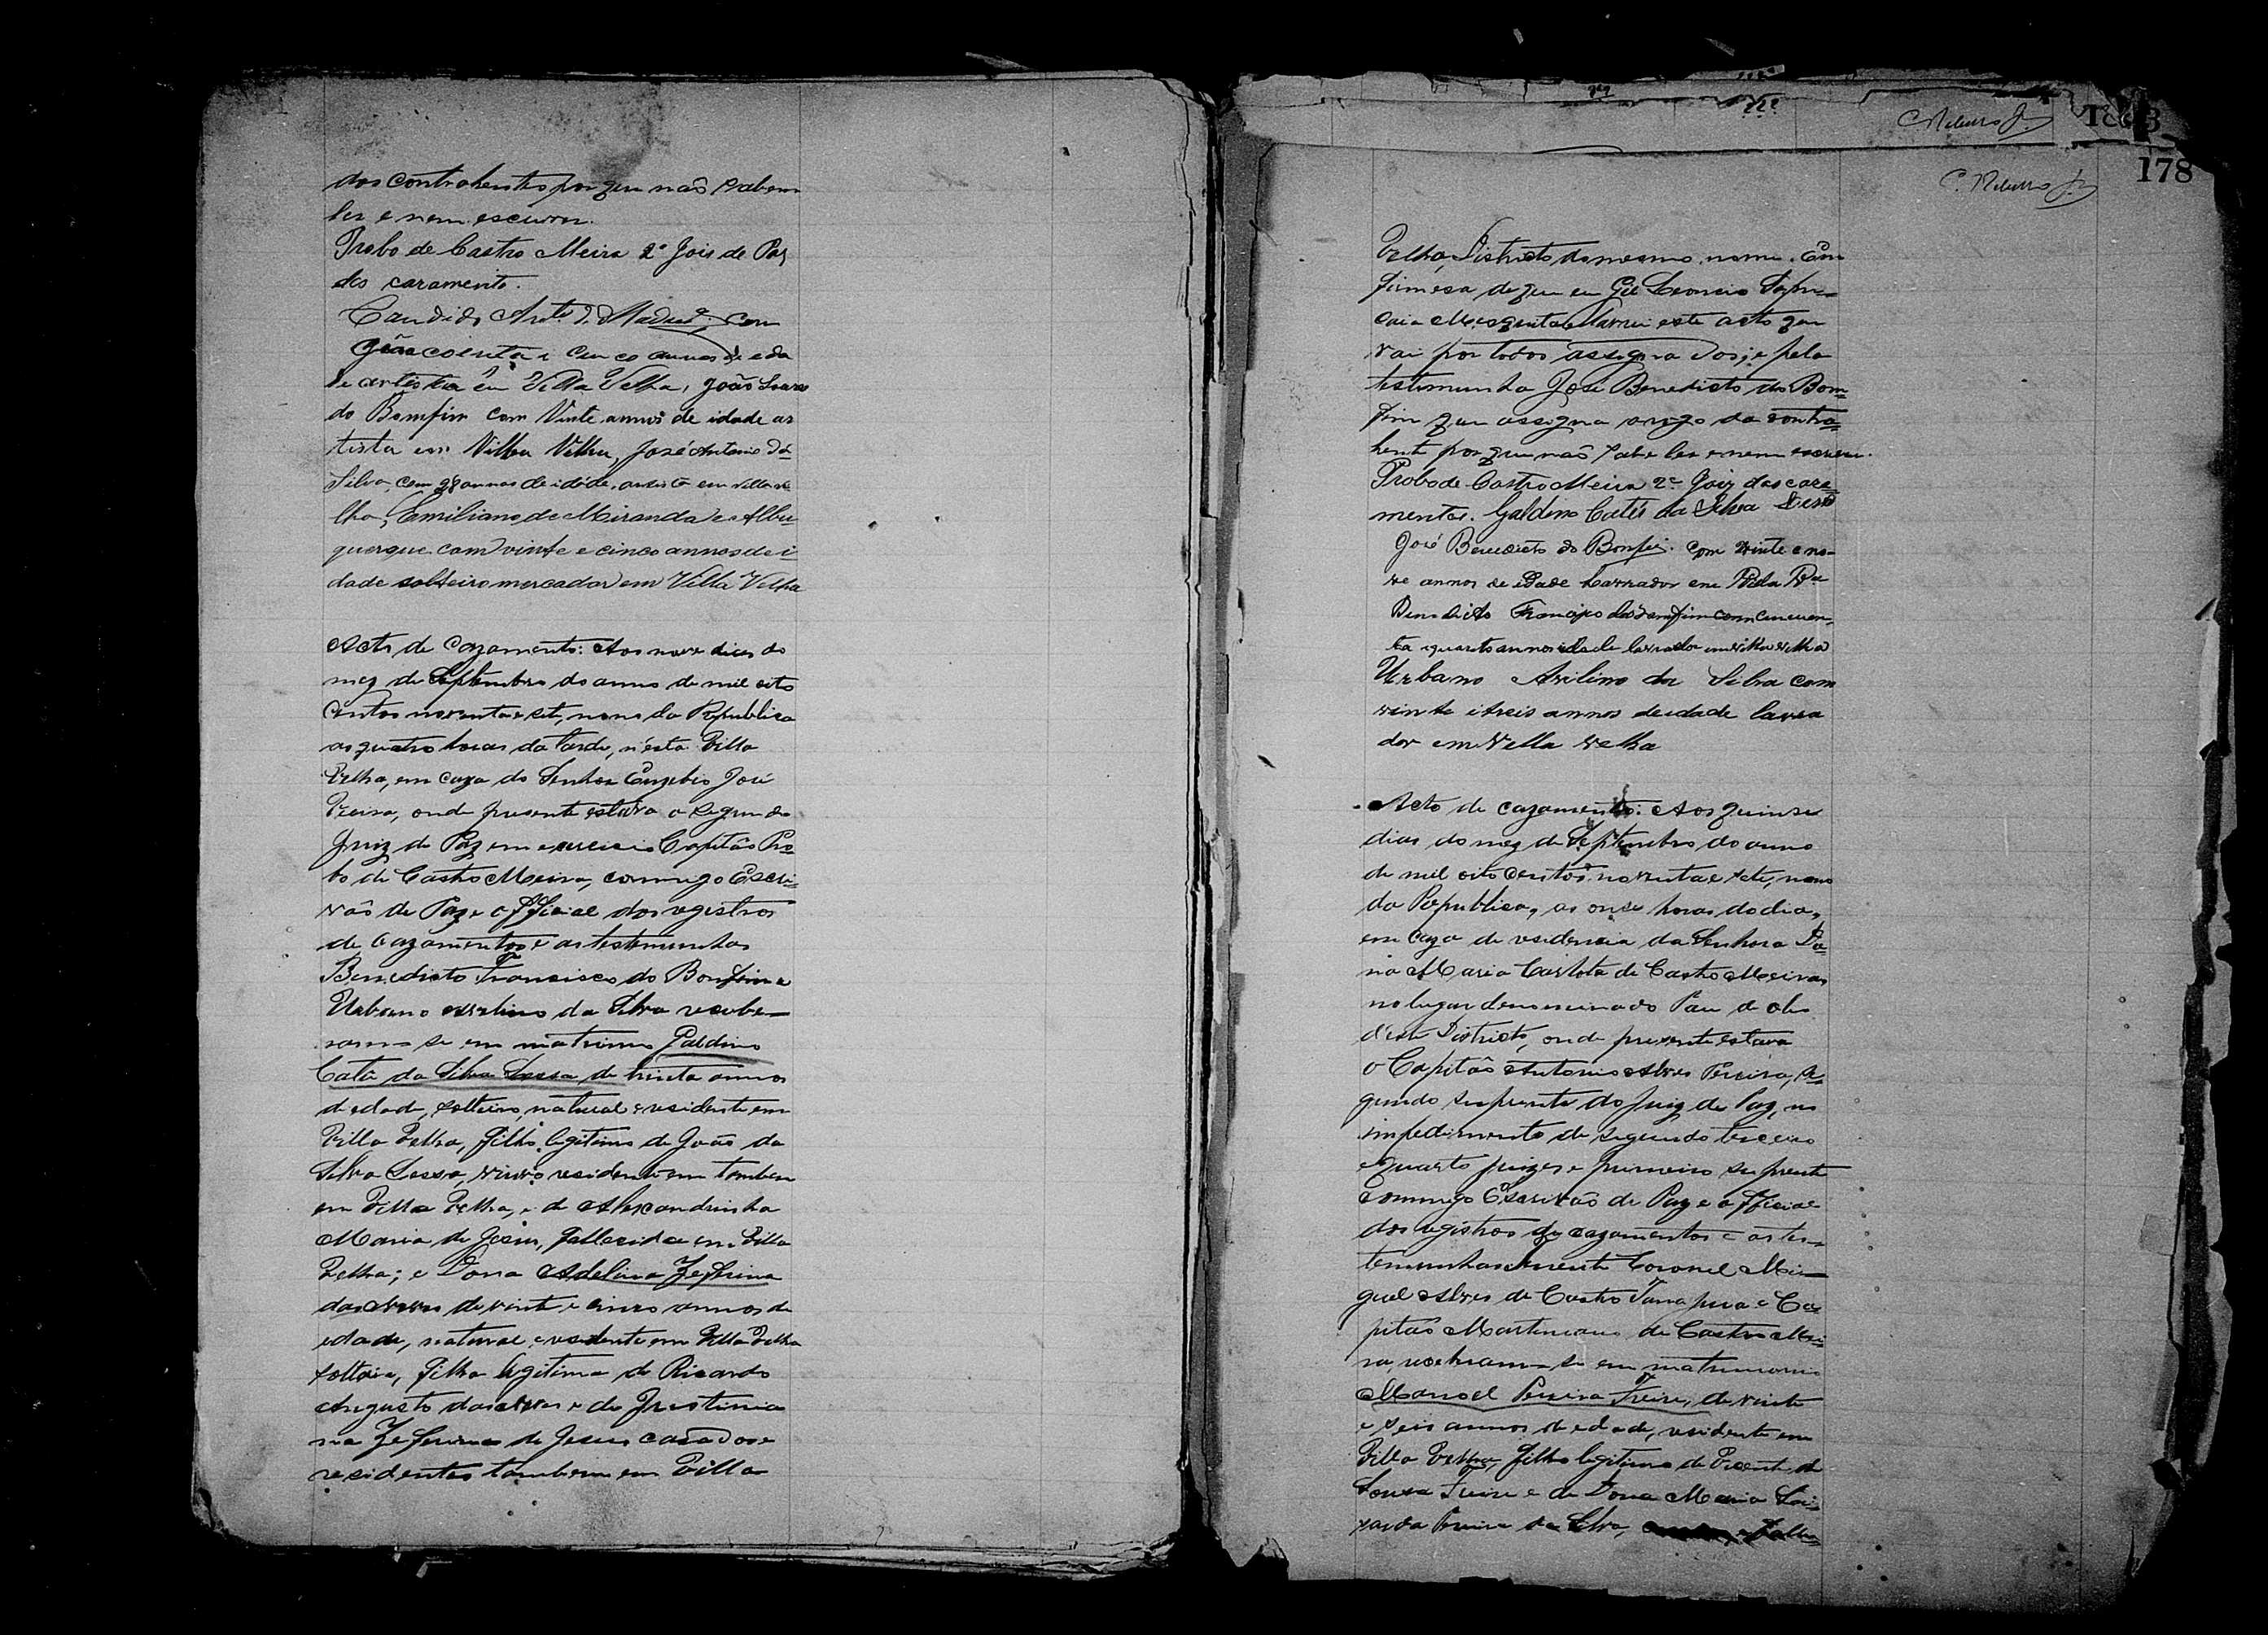 dos contrahentes por que não sabem
ler e nem escrever.
Probo de Castro Meira 2º Jois de Paz
dos casamento.
Candido Ant.º d. com
coenta e cinco annos de eda
de artista em Villa Velha, João Soares
do Bomfim com Vinte annos de idade ar
tista em Villa Velha, José Antonio da
Silva, com 28 annos de idade, artista em villa ve
lha, Emiliano de Miranda e Albu
querque com vinte e cinco annos de i
dade solteiro mercador em Villa Velha
Acto de cazamento: Aos nove dias do
mez de Septembro do anno de mil oito
centos noventa e sete, nono da Republica
as quatro horas da tarde, n'esta Villa
Velha, em caza do Senhor Euzebio José
Vieira, onde presente estava o segundo
Juiz de Paz em exercicio Capitão Pro
bo de Castro Meira, commigo Escri-
vão de Paz e official dos registros
de cazamentos e as testemunhas
Benedicto Francisco do Bomfim e
Urbano Avelino da Silva recebe-
ram-se em matrimo Galdino
Catê da Silva Lessa de trinta annos
de edade, solteiro, natural e residente em
Villa Velha, filho legitimo de João da
Silva Lessa, viuvo residente em tambem
em Villa Velha, e de Alexandrinha
Maria de Jesus, fallecida em Villa
Velha; e Dona Adelina Zeferina
das Neves de vinte e cinco annos de
edade, natural e residente em Villa Velha
solteira, filha legitima de Ricardo
Augusto das Neves e de Justinia
na Zeferina de Jesus casados e
residentes tambem em Villa
178
Velha, Districto do mesmo nome. Em
firmesa do que eu Gil Leoncio
Mesquita lavrei este acto que
vai por todos assignados; e pela
testemunha José Benedicto do Bom-
fim que assigna arogo da contra-
hente por que não sabe ler e nem escrever.
Probo de Castro Meira 2º Joiz das casa-
mentos. Galdino Catês da Silva Lessa
José Benedicto do Bonfim. com vinte e no-
ve annos de edade lavrador em Villa Va
Benedicto Francisco do Bomfim com cincoen-
ta e quarto annos idade lavrador em villa velha
Urbano Avilino da Silva com
vinte itreis annos deidade lavra
dor em Vella velha
Acto de cazamento: Aos quinse
dias do mez de Septembro do anno
de mil oito centos noventa e sete, nono
da Republica, as onse horas do dia,
em caza de residencia da Senhora Do-
na Maria Carlota de Castro Meira
no lugar denominado Pau de olio
d'este Districto, onde presente estava
o Capitão Antonio Alves Pereira, se-
gundo suprente do Juiz de Paz, no
impedimento do segundo terceiro
e quarto juizes e primeiro suprente
commigo Escrivão de Paz e official
dos registros de cazamentos e as tes-
temunhas Tenente Coronel Mi-
guel Alves de Castro Tanajura e Ca-
pitão Martiniano de Castro Mei-
ra receberam-se em matrimonio
Manoel Pereira Freire, de vinte
e seis annos de edade, residente em
Villa Velha, filho legitimo de Vicente de
Souza Freire e de Dona Maria
Pereira da Silva,